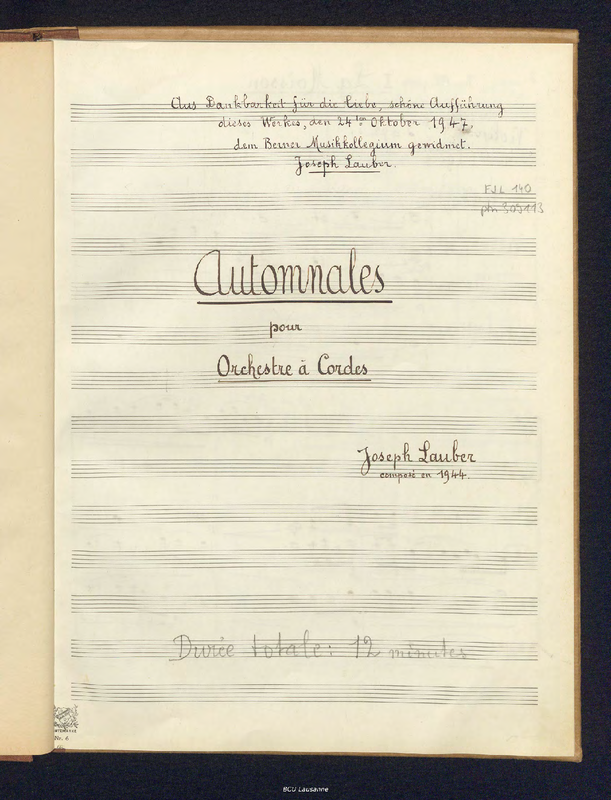 Aus Dankbarkeit für die liebe, schöne Aufführung
dieses Werkes, den 24ten Oktober 1947,
dem Berner Musikkollegium gewidmet.
Joseph Lauber.
FJL 140
Automnales
pour
Orchestre à Cordes
Joseph Lauber
composé en 1944.
Durée totale: 12 minutes
Nr. 6
BCU Lausanne